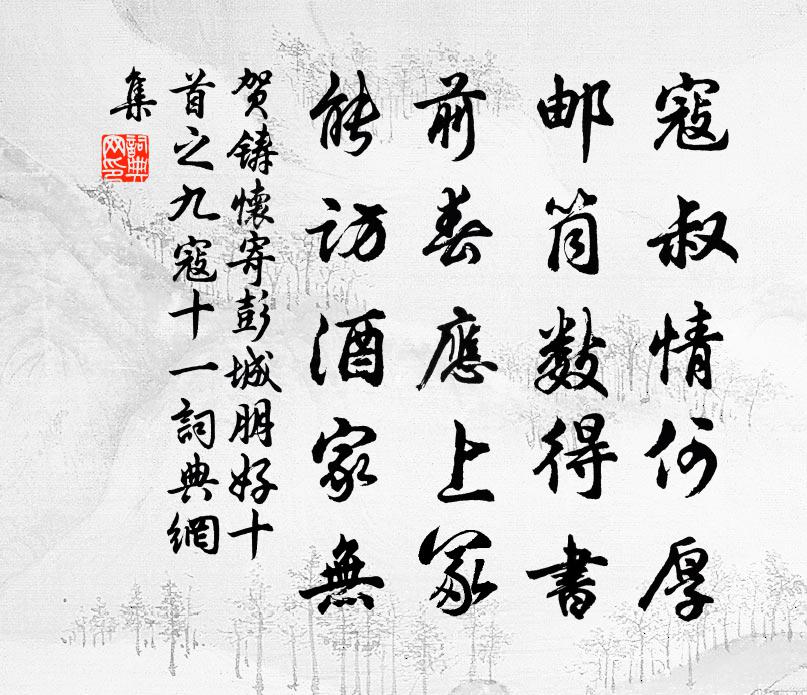 寇叔情何厚
邮筒数得書
前春應上冢
能访酒家無
贺鑄懷寄彭城朋好十
首之九寇十一詞典網
集
詞典
网